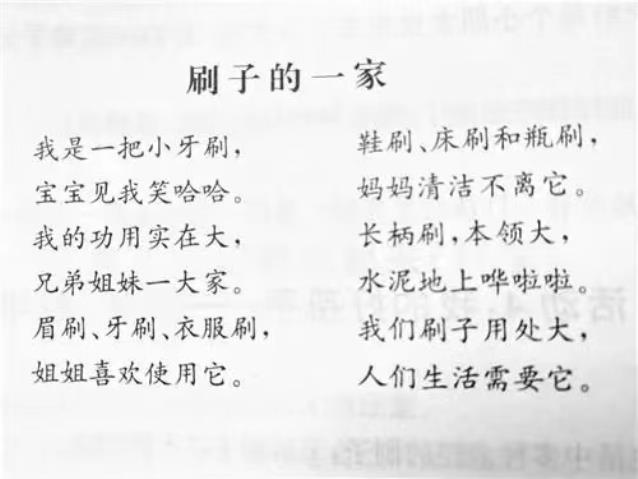 刷子的一家
我是一把小牙刷，
宝宝见我笑哈哈。
我的功用实在大，
兄弟姐妹一大家。
眉刷、牙刷、衣服刷，
姐姐喜欢使用它。
鞋刷、床刷和瓶刷，
妈妈清洁不离它。
长柄刷，本领大，
水泥地上哗啦啦。
我们刷子用处大，
人们生活需要它。